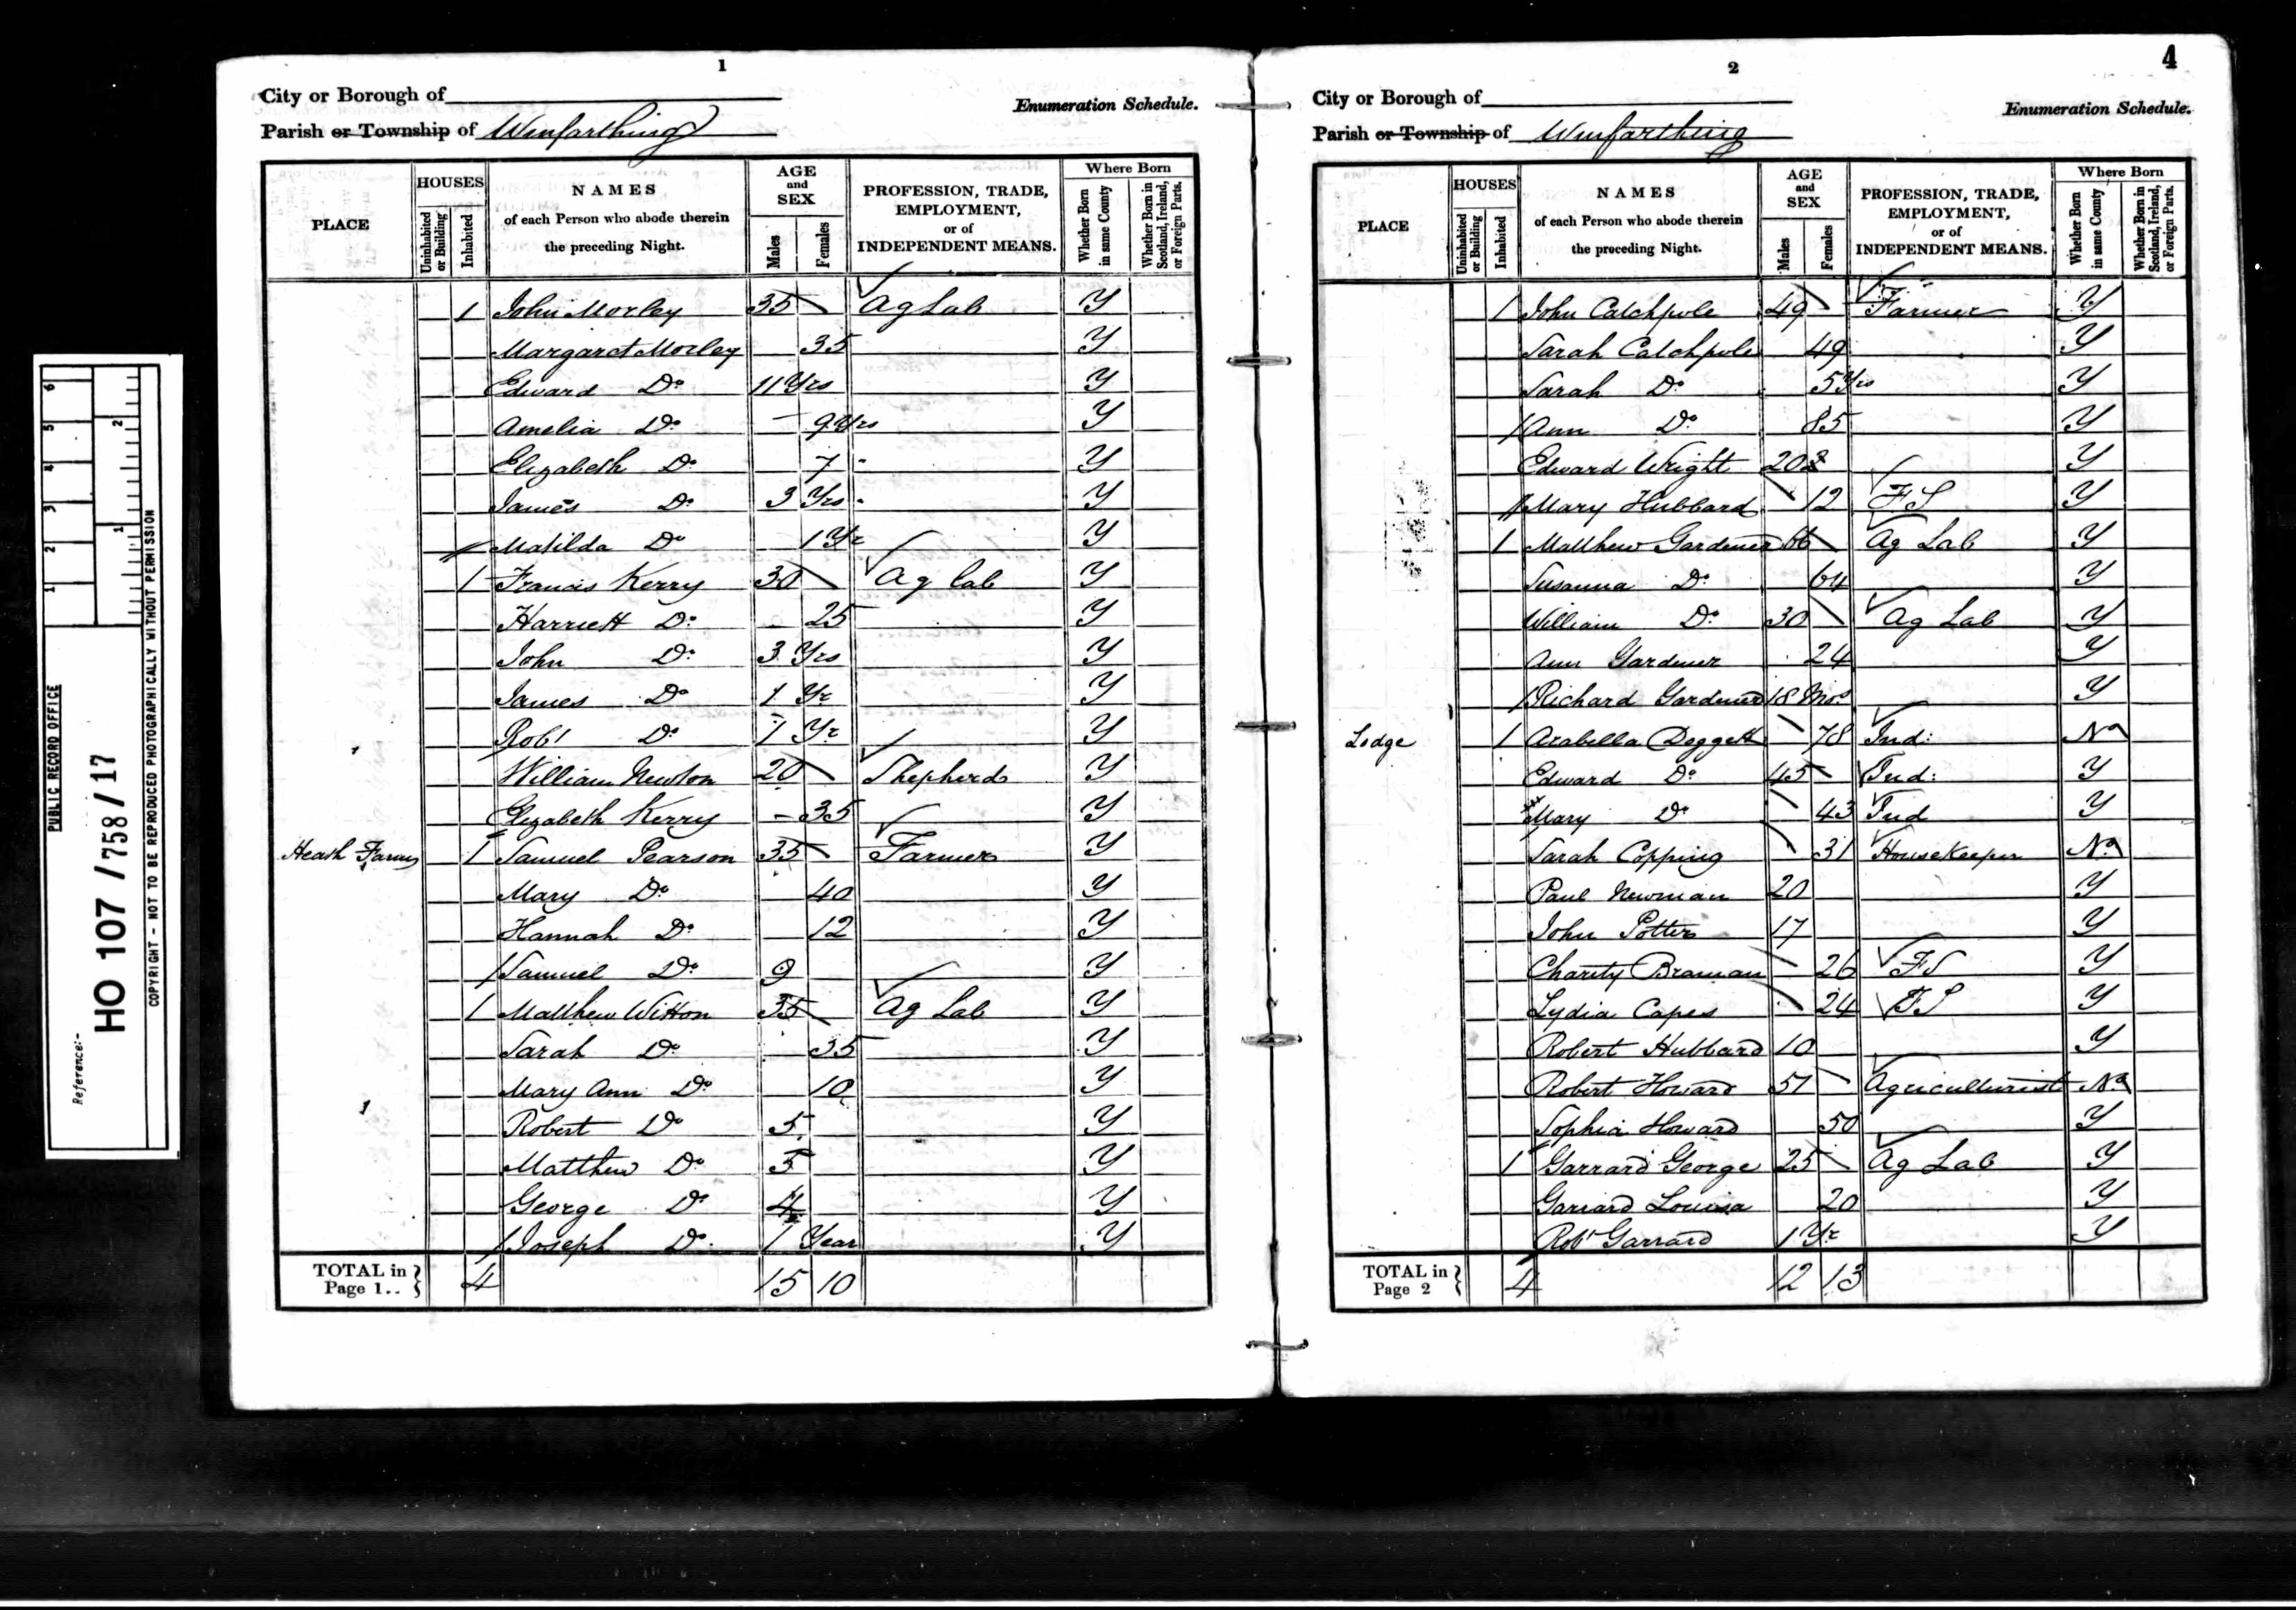 PUBLIC RECORD OFFICE
Reference:-
HO 107 / 758 / 17
COPYRIGHT - NOT TO BE REPRODUCED PHOTOGRAPHICALLY WITHOUT PERMISSION
1 2 3 4 5 6
1 2
1
City or Borough of
Enumeration Schedule.
Parish or Township of Winfarthing
PLACE
HOUSES
Uninhabited or Building
Inhabited
NAMES
of each Person who abode therein
the preceding Night.
AGE and SEX
Males
Females
PROFESSION, TRADE,
EMPLOYMENT,
or of
INDEPENDENT MEANS.
Where Born
Whether Born in same County
Whether Born in Scotland, Ireland, or Foreign Parts.
1 John Morley 35 Ag Lab Y
Margaret Morley 35 Y
Edward Do 11 Yrs Y
Amelia Do 9 Yrs Y
Elizabeth Do 7 Y
James Do 3 Yrs Y
Matilda Do 1 Yr Y
1 Francis Kerry 30 Ag Lab Y
Harriett Do 25 Y
John Do 3 Yrs Y
James Do 1 Yr Y
Robt Do 1 Yr Y
William Newton 20 Shepherd Y
Elizabeth Kerry 35 Y
Heath Farm 1 Samuel Pearson 35 Farmer Y
Mary Do 40 Y
Hannah Do 12 Y
Samuel Do 9 Y
1 Matthew Witton 35 Ag Lab Y
Sarah Do 35 Y
Mary Ann Do 10 Y
Robert Do 5 Y
Matthew Do 5 Y
George Do 4 Y
Joseph Do 1 Year Y
TOTAL in Page 1.. 4 15 10
2
4
City or Borough of
Enumeration Schedule.
Parish or Township of Winfarthing
PLACE
HOUSES
Uninhabited or Building
Inhabited
NAMES
of each Person who abode therein
the preceding Night.
AGE and SEX
Males
Females
PROFESSION, TRADE,
EMPLOYMENT,
or of
INDEPENDENT MEANS.
Where Born
Whether Born in same County
Whether Born in Scotland, Ireland, or Foreign Parts.
1 John Catchpole 49 Farmer Y
Sarah Catchpole 49 Y
Sarah Do 5 Yrs Y
Ann Do 85 Y
Edward Wright 20 Y
Mary Hubbard 12 FS Y
1 Matthew Gardener 66 Ag Lab Y
Susanna Do 64 Y
William Do 30 Ag Lab Y
Ann Gardener 24 Y
Richard Gardener 18 Mos Y
Lodge 1 Arabella Doggett 78 Ind: No
Edward Do 45 Ind: Y
Mary Do 43 Ind Y
Sarah Copping 31 HouseKeeper No
Paul Newman 20 Y
John Potter 17 Y
Charity Braman 26 FS Y
Lydia Capes 24 FS Y
Robert Hubbard 10 Y
Robert Howard 51 Agriculturist No
Sophia Howard 50 Y
1 Garrard George 25 Ag Lab Y
Garrard Louisa 20 Y
Robt Garrard 1 Yr Y
TOTAL in Page 2 4 12 13